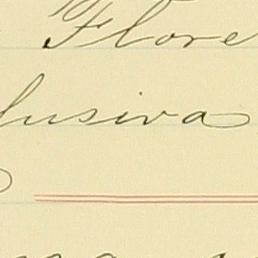 Flore
lusiva